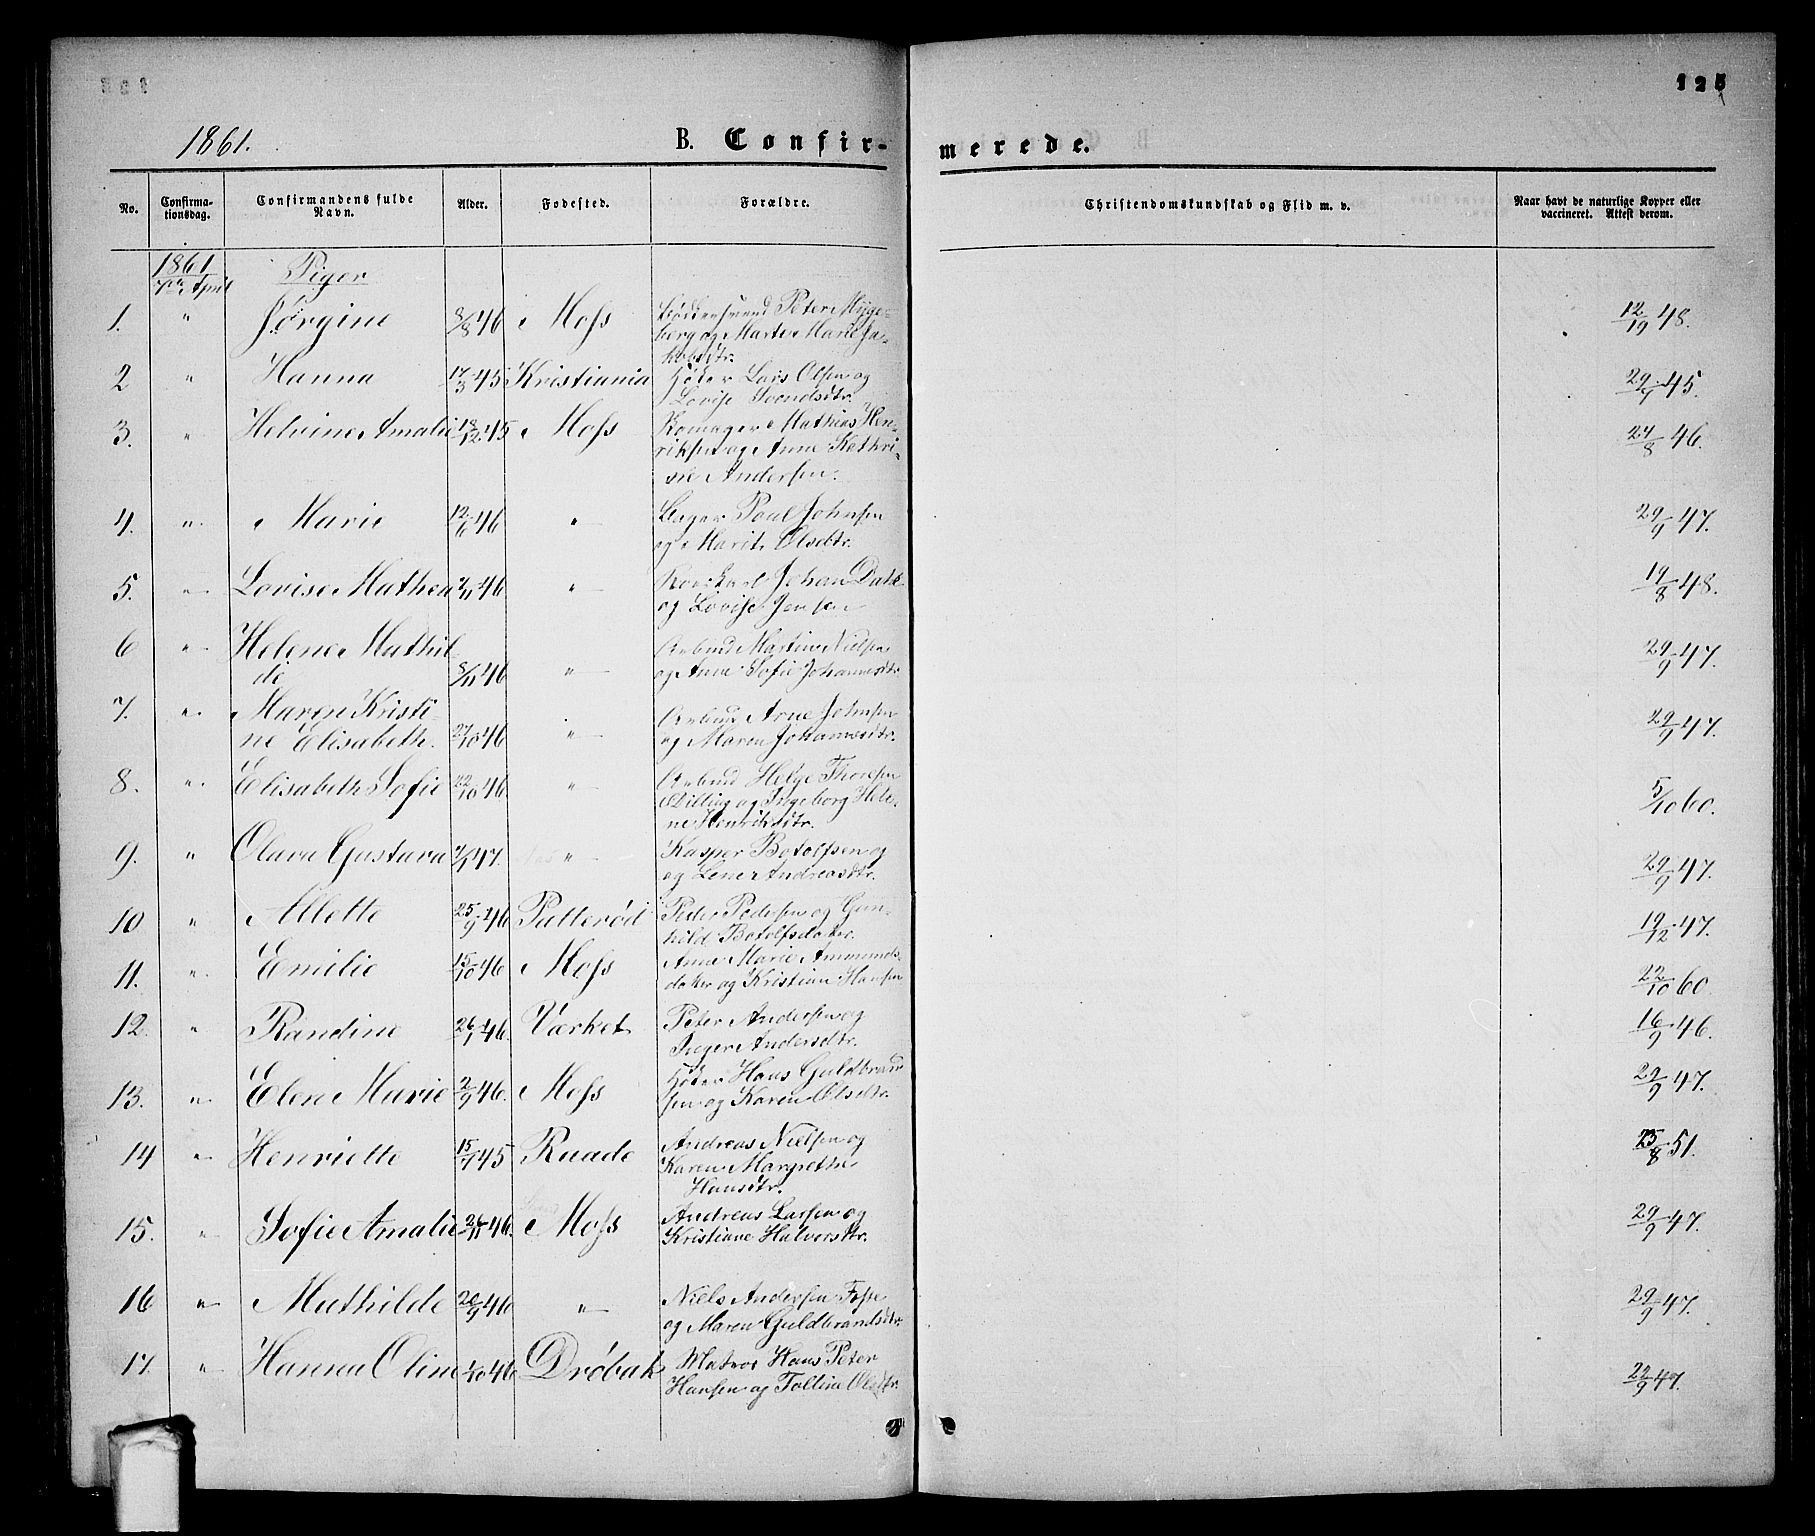 125
1861.
B. Confir-
merede.
No.
Confirma-
tionsdag.
Confirmandens fulde
Navn.
Alder.
Fødested.
Forældre.
Christendomskundskab og Flid m. v.
Naar havt de naturlige Kopper eller
vaccineret. Attest derom.
1861
7de April
Piger
1. " Jørgine 8/8 46 Moss Peter Myge-
berg og Marte Marie Ja-
kobsdtr. 12/19 48.
2 " Hanna 17/3 45 Kristiania Lars Olsen og
Lovise Svendsdtr. 29/9 45.
3. " Helvine Amalie 18/12 45 Moss Mathias Hen-
riksen og Anne Kathri-
ne Andersen. 24/8 46.
4. " Marie 12/6 46 " Poul Johnsen
og Marit Olsdtr. 29/9 47.
5. " Lovise Mathea 2/11 46 " Johan Dahl
og Lovise Jensen 19/8 48.
6 " Helene Mathil-
de 8/11 46 " Arbmd Martin Nielsen
og Anne Sofie Johannesdtr. 29/9 47.
7. " Maren Kristi-
ne Elisabeth. 27/10 46 " Arbmd Arne Johnsen
og Maren Johannesdtr. 29/9 47.
8. " Elisabeth Sofie 22/10 46 " Arbmd Helge Thoresen
Dilling og Ingeborg Hele-
ne Henriksdtr. 5/10 60.
9. " Olava Gustava 2/1 47. " Kasper Botolfsen og
og Lene Andreasdtr. 29/9 47.
10 " Allette 25/9 46 Patterød Peder Pedersen og Gun-
hild Botolfsdoter. 19/12 47.
11. " Emilie 15/10 46 Moss Anne Marie Ammunds-
doter og Kristian Hansen 22/10 60
12. " Randine 26/1 46. Værket Peter Andersen og
Inger Andersdtr. 16/9 46.
13. " Elen Marie 2/9 46. Moss Hans Guldbrand
sen og Karen Olsdtr. 29/9 47.
14 " Henriette 15/7 45 Raade Andreas Nielsen og
Karen Margrethe
Hansdtr. 25/8 51.
15. " Sofie Amalie 26/11 46. Moss Andreas Larsen og
Kristiane Halvorsdtr. 29/9 47.
16 " Mathilde 20/9 46 " Niels Andersen Fosse
og Maren Guldbrandsdtr. 29/9 47.
17. " Hanna Oline 1/10 46 Drøbak Matros Hans Peter
Hansen og Toline Olsdtr. 22/9 47.